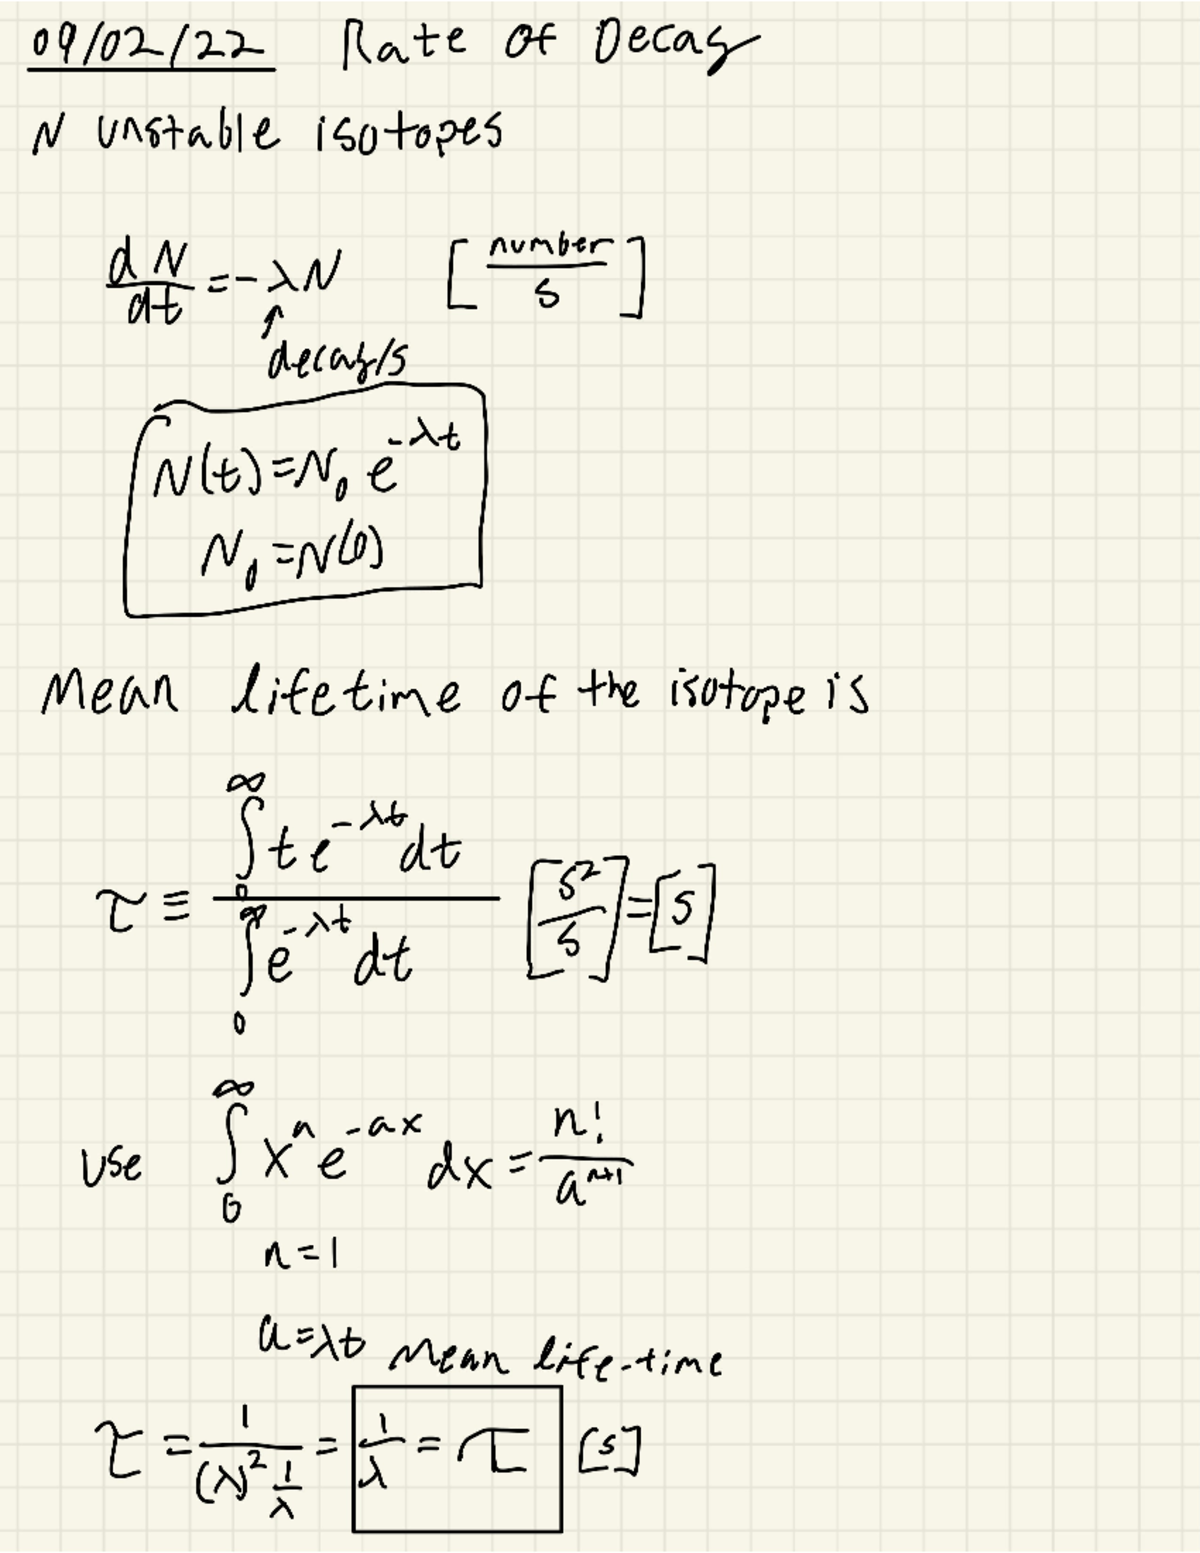 09/02/22 Rate of Decay
N unstable isotopes
dN/dt = -λN [number/s]
↑
decay/s
N(t) = N₀ e^(-λt)
N₀ = N(0)
Mean lifetime of the isotope is
τ ≡ ∫₀^∞ t e^(-λt) dt / ∫₀^∞ e^(-λt) dt [s²/s] = [s]
Use ∫₀^∞ xⁿ e^(-ax) dx = n!/a^(n+1)
n = 1
a = λt Mean life-time
τ = 1/((λ)² 1/λ) = 1/λ = τ [s]